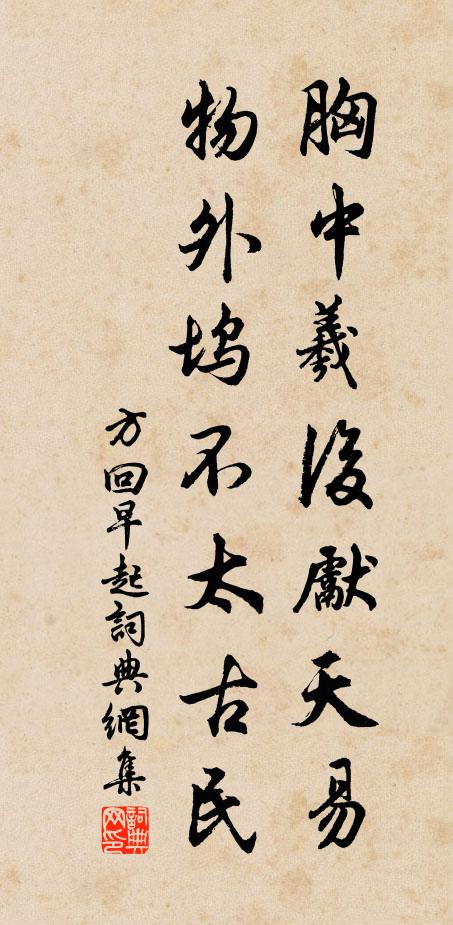 胸中羲後獻天易
物外坞不太古民
方回早起詞典網集
詞典
网印